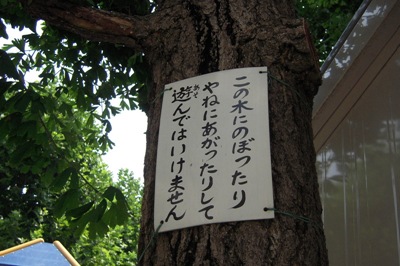 この木にのぼったり
やねにあがったりして
遊んではいけません
あそ